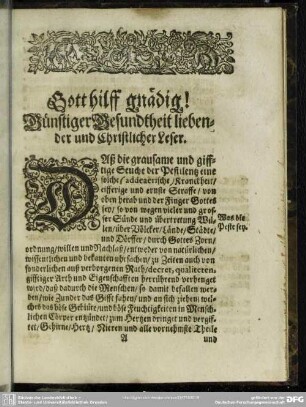 Gott hilff gnädig!
Günstiger Gesundtheit lieben-
der und Christlicher Leser.
Daß die grausame und giff-
tige Seuche der Pestilentz eine
solche / Kranckheit /
eifferige und ernste Straffe / von
oben herab und der Finger Gottes
sey / so von wegen vieler und gros-
ser Sünde und übertretung Wil-
len / über Völcker / Lände / Städte /
und Dörffer / durch Gottes Zorn /
Was die
Peste sey.
ordnung / willen und Nachlaß / entweder von natürlichen /
wissentlichen und bekanten uhrsachen / zu Zeiten auch von
sonderlichen auß verborgenen Rath / decret, qualiteten /
gifftiger Arth und Eigenschafften herrührend verhenget
wird / daß dadurch die Menschen / so damit befallen wer-
den / wie Zunder das Gifft fahen / und an sich ziehen / wel-
ches das böse Geblüte / und böse Feuchtigkeiten in Mensch-
lichen Cörper entzündet / zum Hertzen dringet und vergif-
tet / Gehirne / Hertz / Nieren und alle vornehmste Theile
A und